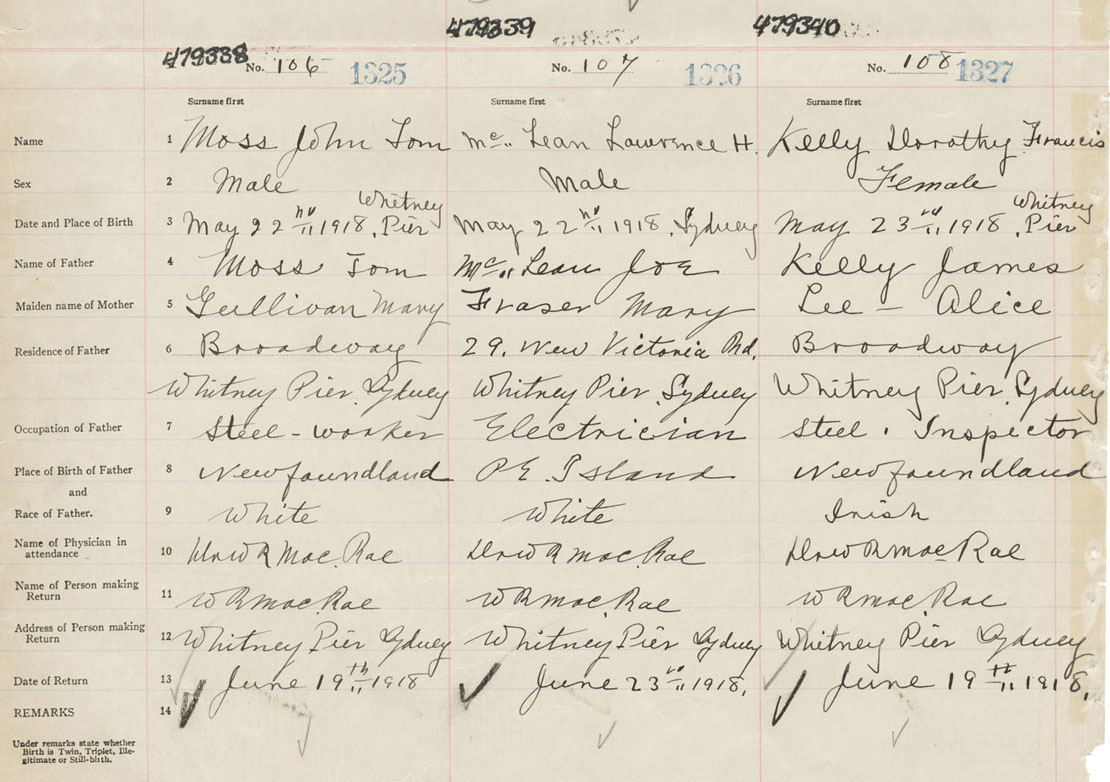 479338 479339 479340
No. 106 1325 No. 107 1326 No. 108 1327
Surname first Surname first Surname first
Name 1 Moss John Tom Mc. Lean Lawrence H. Kelly Dorothy Francis
Sex 2 Male Male Female
Whitney Whitney
Date and Place of Birth 3 May 22nd 1918, Pier May 22nd 1918, Sydney May 23rd 1918, Pier
Name of Father 4 Moss Tom Mc. Lean Joe Kelly James
Maiden name of Mother 5 Gullivan Mary Fraser Mary Lee - Alice
Residence of Father 6 Broadway 29. New Victoria Rd. Broadway
Whitney Pier, Sydney Whitney Pier, Sydney Whitney Pier, Sydney
Occupation of Father 7 Steel-worker Electrician Steel. Inspector
Place of Birth of Father 8 Newfoundland P.E. Island Newfoundland
and
Race of Father. 9 White White Irish
Name of Physician in
attendance 10 Dr W R Mac.Rae Dr W R Mac.Rae Dr W R MacRae
Name of Person making
Return 11 W R Mac.Rae W R Mac.Rae W R Mac.Rae
Address of Person making
Return 12 Whitney Pier Sydney Whitney Pier Sydney Whitney Pier Sydney
Date of Return 13 June 19th 1918 June 23rd 1918, June 19th 1918,
REMARKS 14
Under remarks state whether
Birth is Twin, Triplet, Ille-
gitimate or Still-birth.